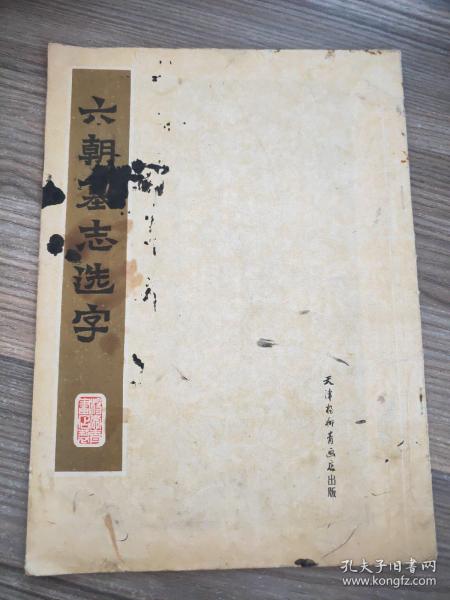 六朝墓志选字
天津杨柳青画店出版
孔夫子旧书网
www.kongfz.com